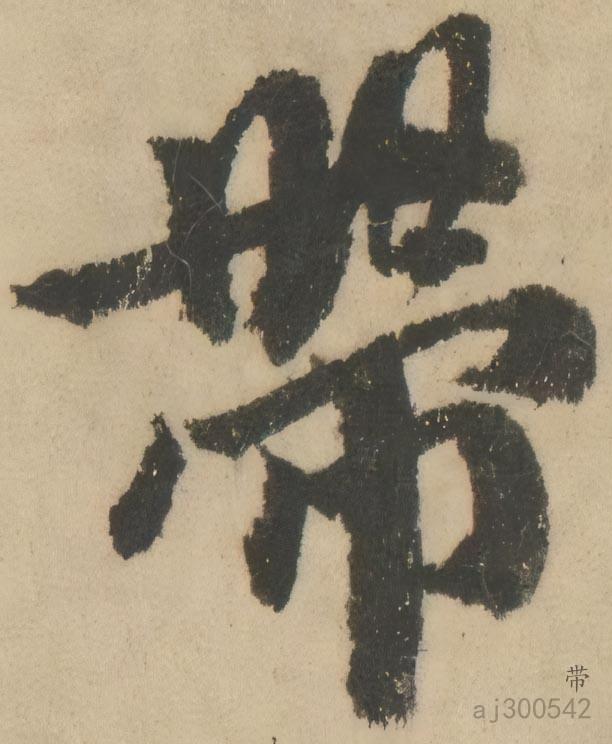 帶
帯
aj300542